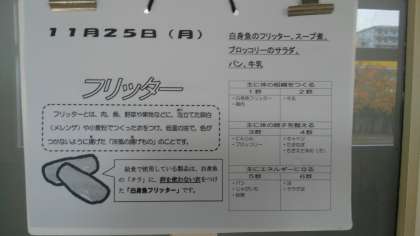 11月25日（月）
フリッター
フリッターとは、肉、魚、野菜や果物などに、泡立てた卵白
（メレンゲ）や小麦粉でつくった衣をつけ、低温の油で、色が
つかないように揚げた「洋風の揚げもの」のことです。
給食で使用している製品は、白身魚
の「タラ」に、卵を使わない衣をつけ
た「白身魚フリッター」です。
白身魚のフリッター、スープ煮、
ブロッコリーのサラダ、
パン、牛乳
主に体の組織をつくる
1群 2群
・白身魚フリッター ・牛乳
・鶏肉
主に体の調子を整える
3群 4群
・にんじん ・キャベツ
・ブロッコリー ・たまねぎ
主にエネルギーになる
5群 6群
・パン ・油
・じゃがいも
・砂糖